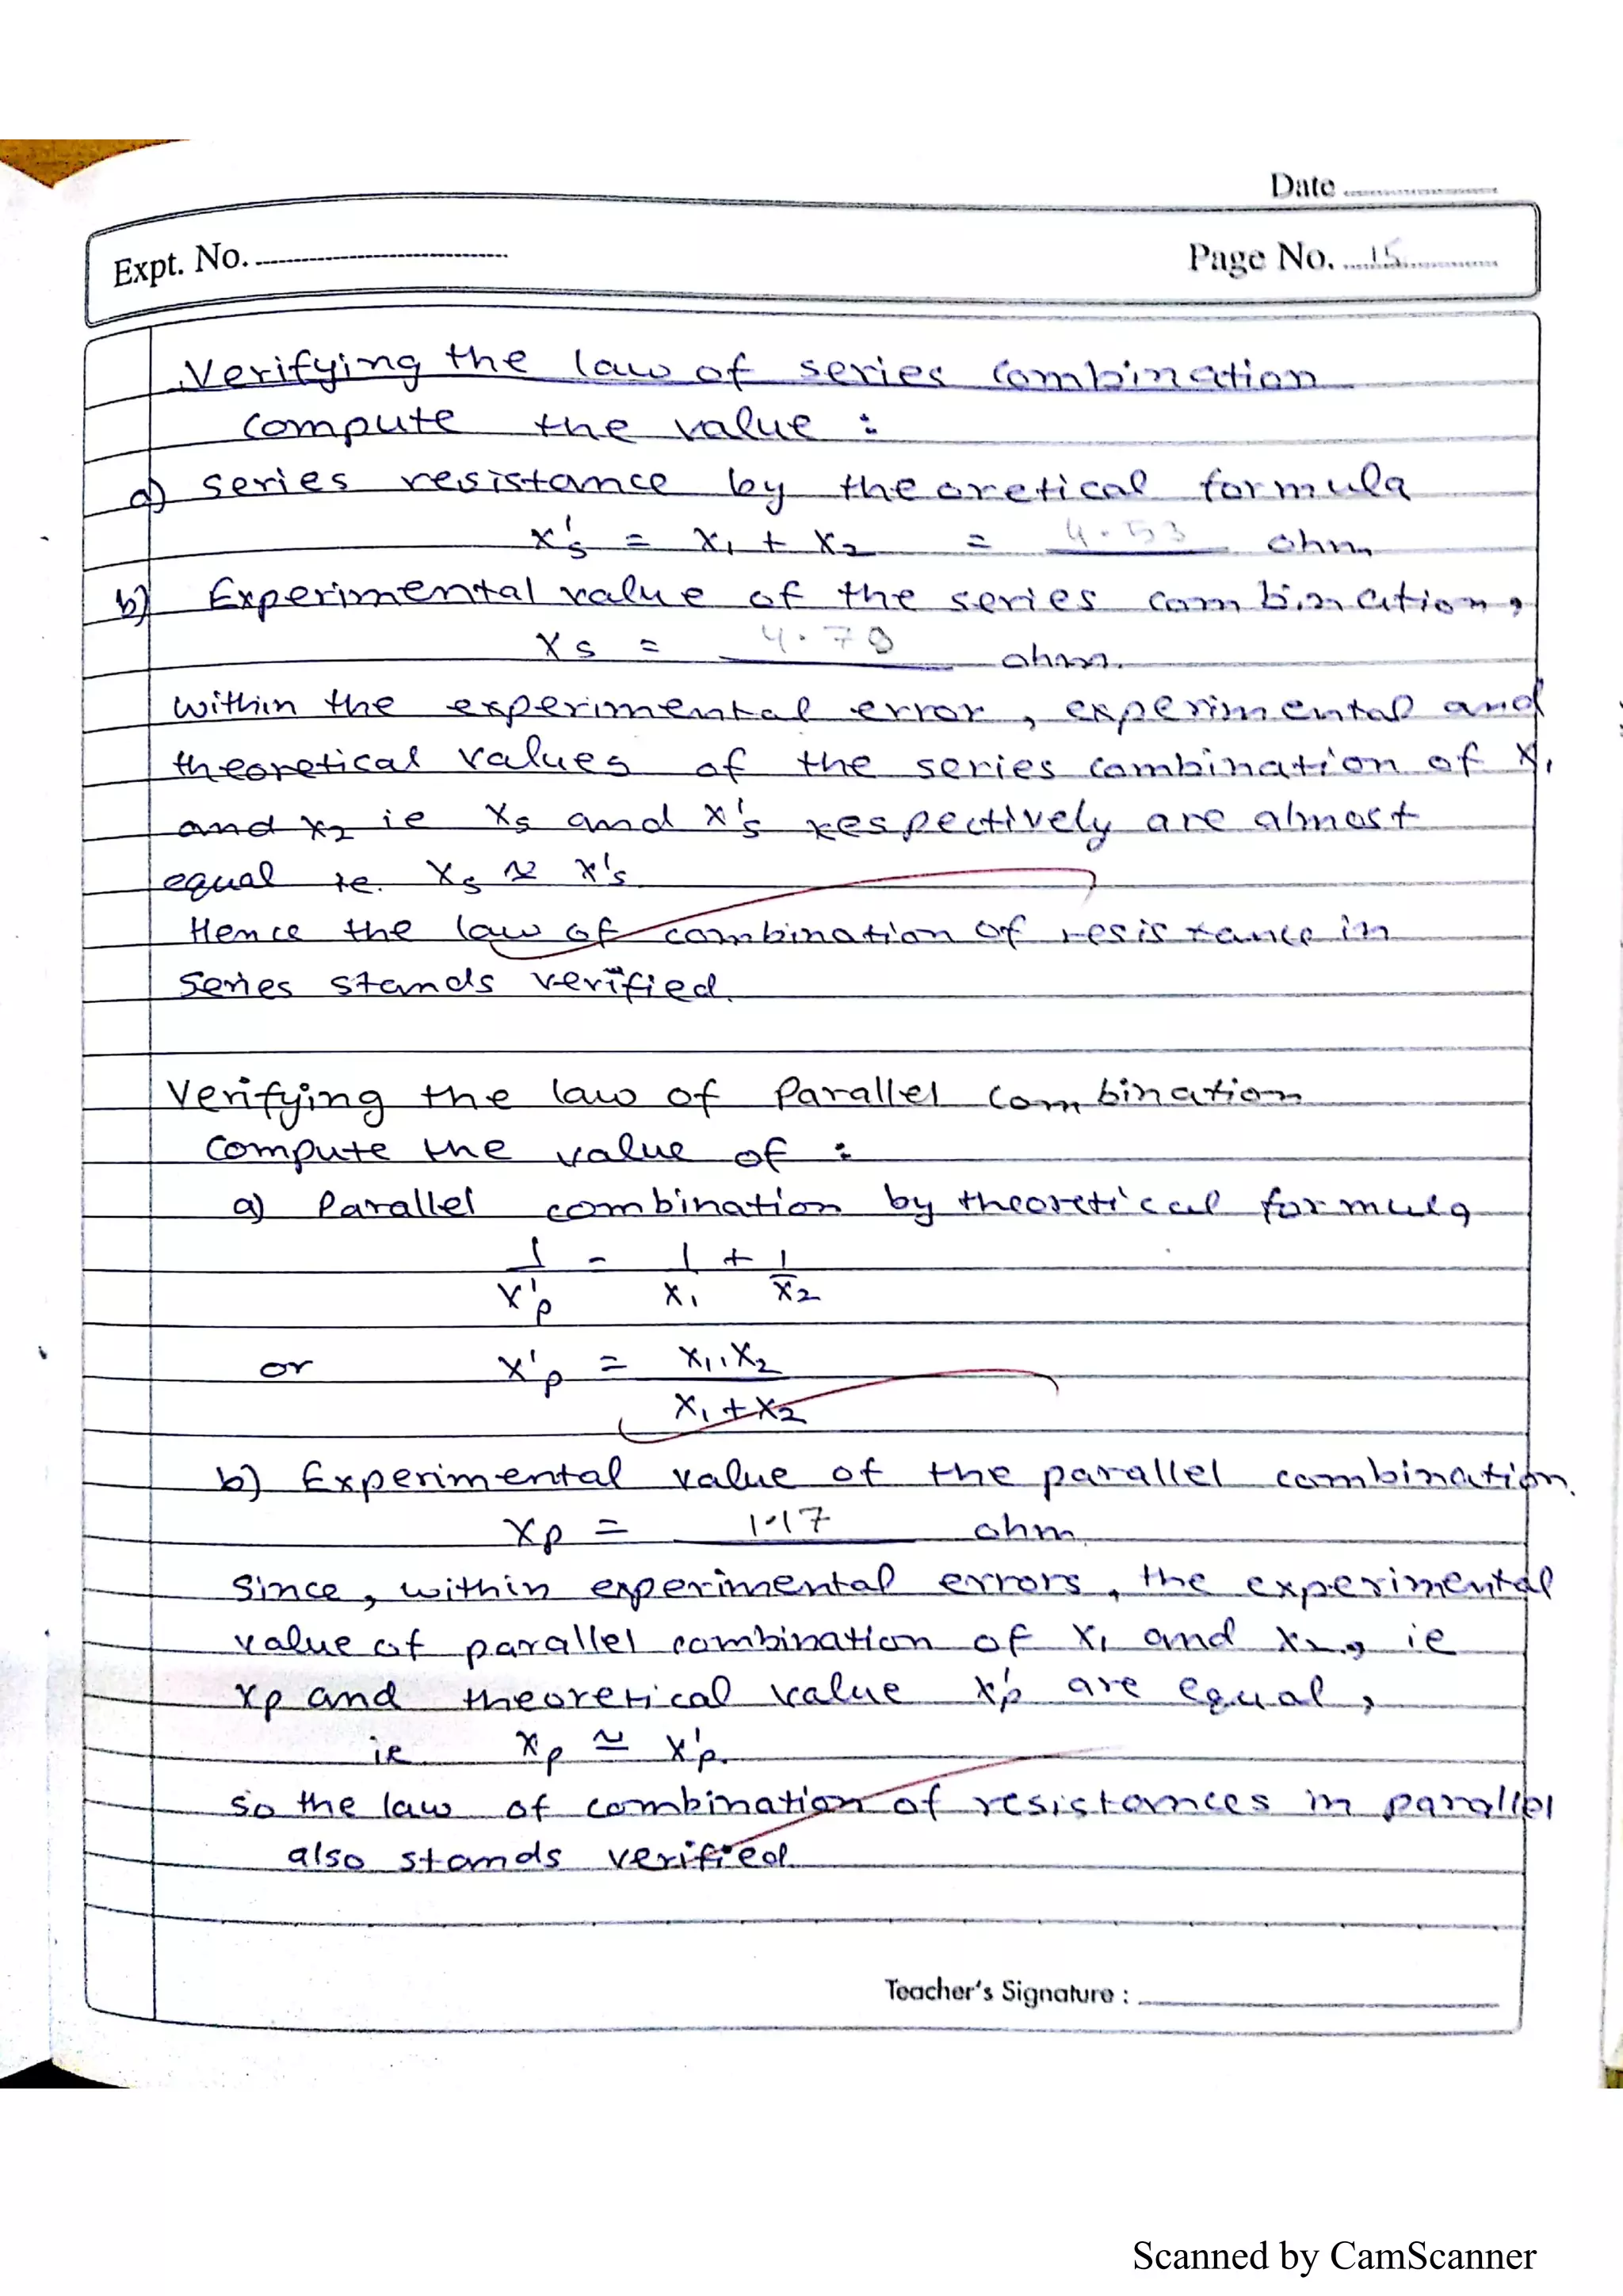 Date
Expt. No.
Page No. 15
Verifying the law of series combination
compute the value :
a) series resistance by theoretical formula
x's = x₁ + x₂ = 4.53 ohm
b) Experimental value of the series combination,
xs = 4.78 ohm.
within the experimental error, experimental and
theoretical values of the series combination of x₁
and x₂ ie xs and x's respectively are almost
equal ie. xs ≈ x's
Hence the law of combination of resistance in
series stands verified.
Verifying the law of Parallel combination
compute the value of :
a) Parallel combination by theoretical formula
1/x'p = 1/x₁ + 1/x₂
or x'p = x₁.x₂ / x₁+x₂
b) Experimental value of the parallel combination.
xp = 1.17 ohm
Since, within experimental errors, the experimental
value of parallel combination of x₁ and x₂, ie
xp and theoretical value x'p are equal,
ie xp ≅ x'p.
so the law of combination of resistances in parallel
also stands verified.
Teacher's Signature :
Scanned by CamScanner